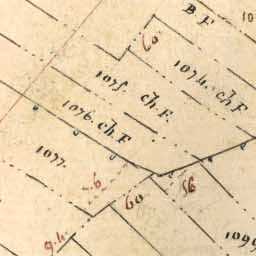 B. F
10
60
1074. ch F
1075. ch. F.
1076. ch. F
1077.
56
60
9.4.
1099